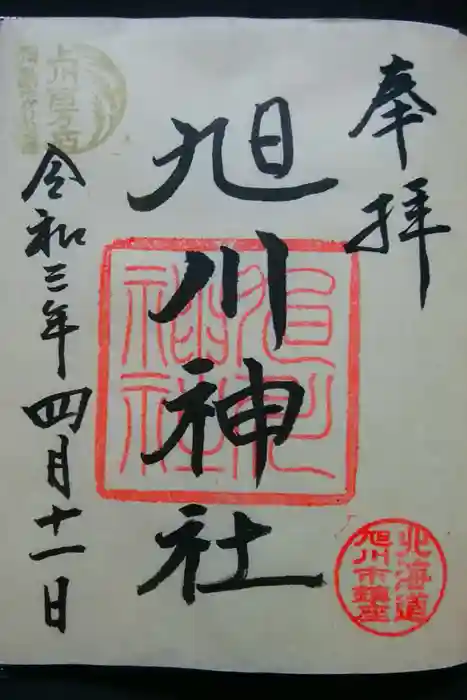 奉拝
旭川神社
令和三年四月十一日
旭川神社
北海道
旭川市鎮座